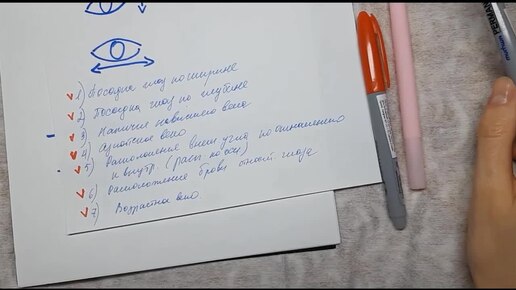 1) Посадка глаз по ширине
2) Посадка глаз по глубине
3) Наличие нависшего века
4) Азиатское веко
5) Расположение внешн угла по отношению
к внутр. (раскосость)
6) Расположение брови относит. глаза
7) Возрастное веко.
PERMAN